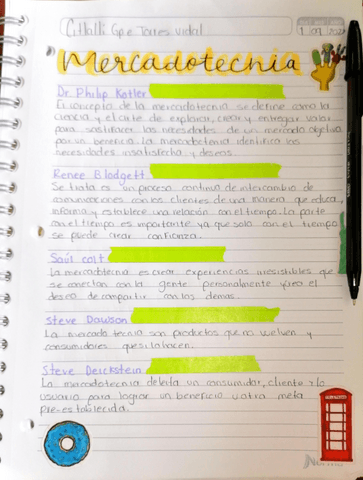 Citlalli Gpe Torres Vidal
Mercadotecnia
Dr. Philip Kotler
El concepto de la mercadotecnia se define como la
ciencia y el arte de explorar, crear y entregar valor
para satisfacer las necesidades de un mercado objetivo
por un beneficio. La mercadotecnia identifica las
necesidades insatisfecha y deseos.
Renee Blodgett
Se trata es un proceso continuo de intercambio de
comunicaciones con los clientes de una manera que educa,
informa y establece una relación con el tiempo. La parte
con el tiempo es importante ya que solo con el tiempo
se puede crear confianza.
Saúl colt
La mercadotecnia es crear experiencias irresistibles que
se conectan con la gente personalmente y crea el
deseo de compartir con los demas.
Steve Dawson
La mercado tecnia son productos que no vuelven y
consumidores que si lo hacen.
Steve Deickstein
La mercadotecnia deleita un consumidor, cliente y/o
usuario para lograr un beneficio u otra meta
pre-establecida.